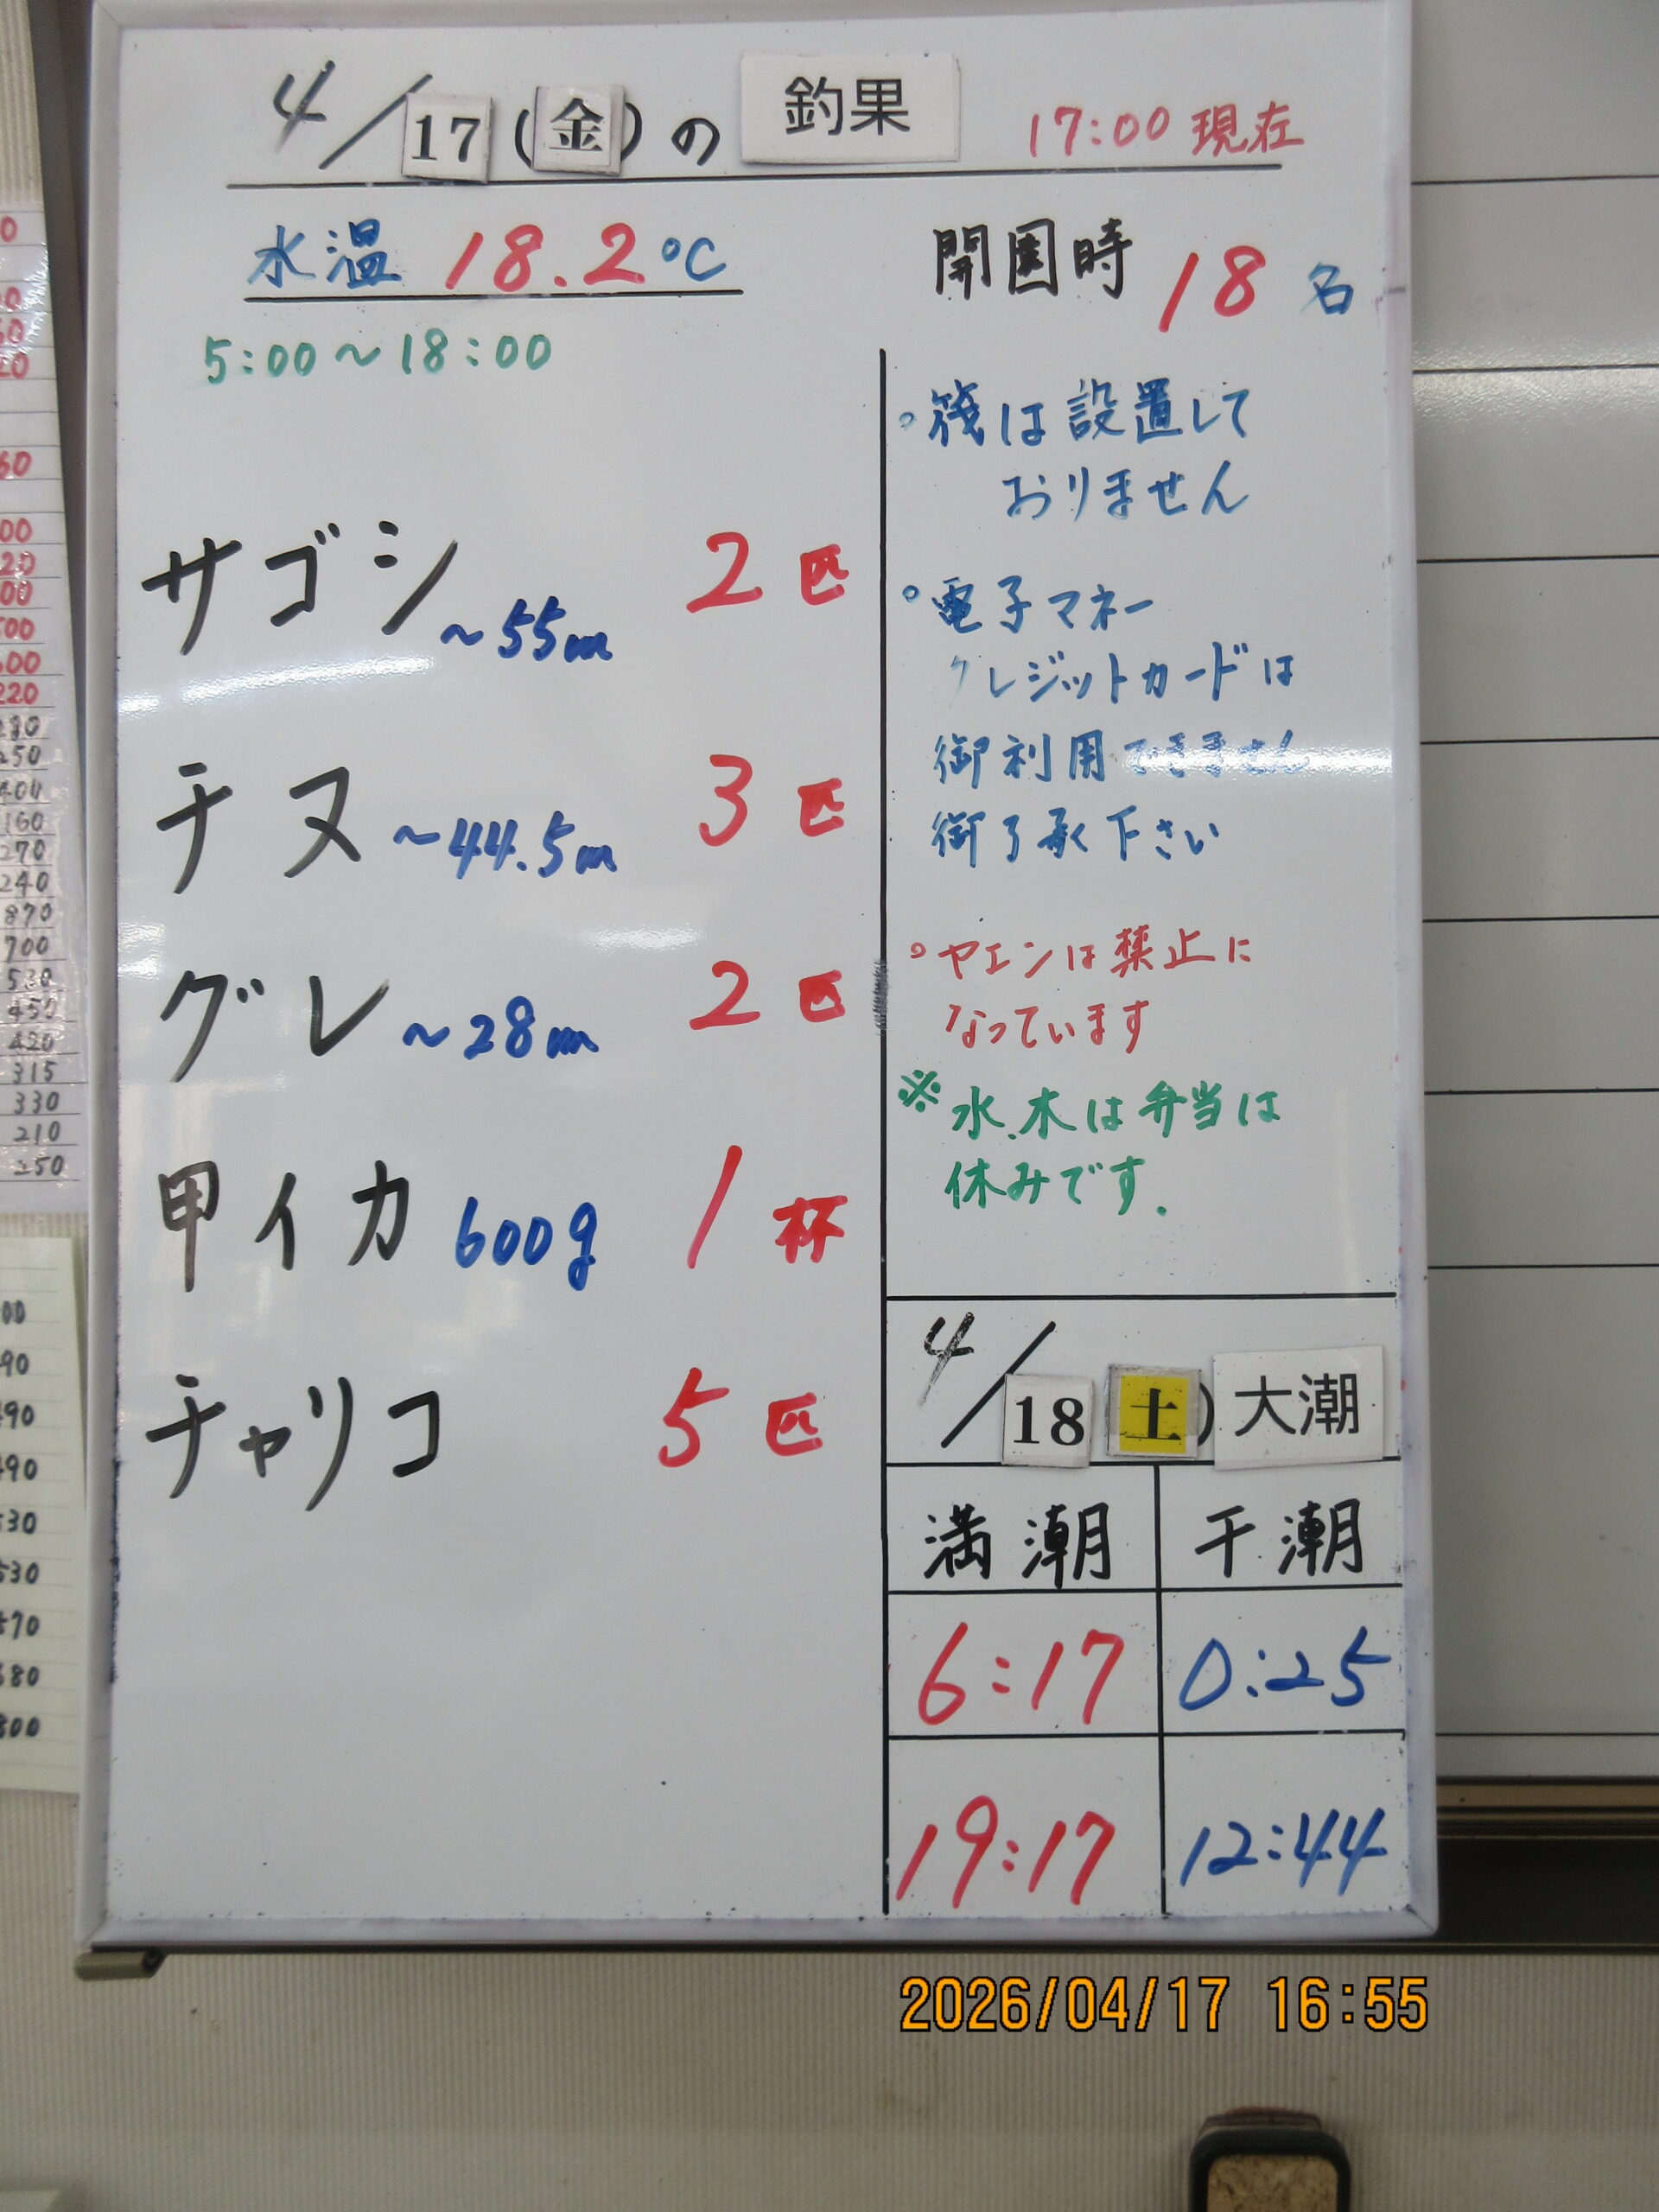 4/17(金)の 釣果 17:00 現在
水温 18.2℃
開園時 18名
5:00～18:00
サゴシ ～55cm 2匹
チヌ ～44.5cm 3匹
グレ ～28cm 2匹
甲イカ 600g 1杯
チャリコ 5匹
◦筏は設置して
おりません
◦電子マネー
クレジットカードは
御利用できません
御了承下さい
◦ヤエンは禁止に
なっています
※水.木は弁当は
休みです.
4/18 土) 大潮
満潮 干潮
6:17 0:25
19:17 12:44
2026/04/17 16:55
315
330
210
250